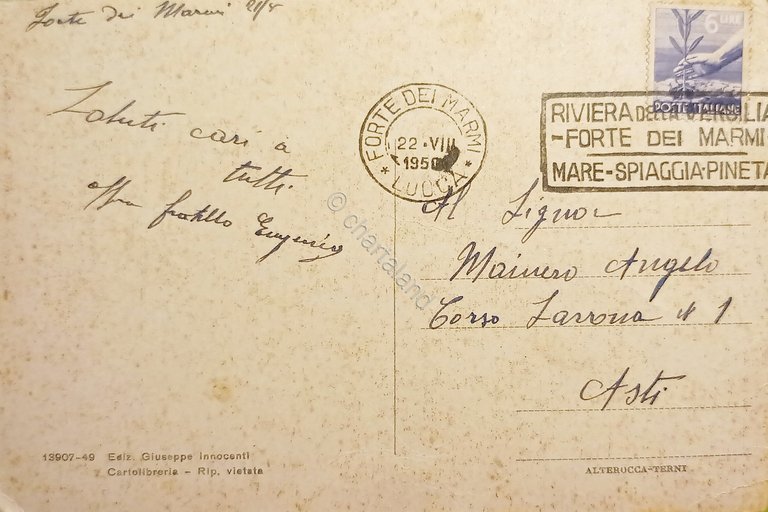 Forte dei Marmi 21/8
Saluti cari a
tutti
aff.mo fratello Eugenio
FORTE DEI MARMI
22·VIII
1950
* LUCCA *
6 LIRE
POSTE ITALIANE
RIVIERA DELLA VERSILIA
-FORTE DEI MARMI
MARE-SPIAGGIA-PINETA
Al Signor
Mainero Angelo
Corso N 1
Asti
© chartaland
13907-49 Ediz. Giuseppe Innocenti
Cartolibreria - Rip. vietata
ALTEROCCA-TERNI